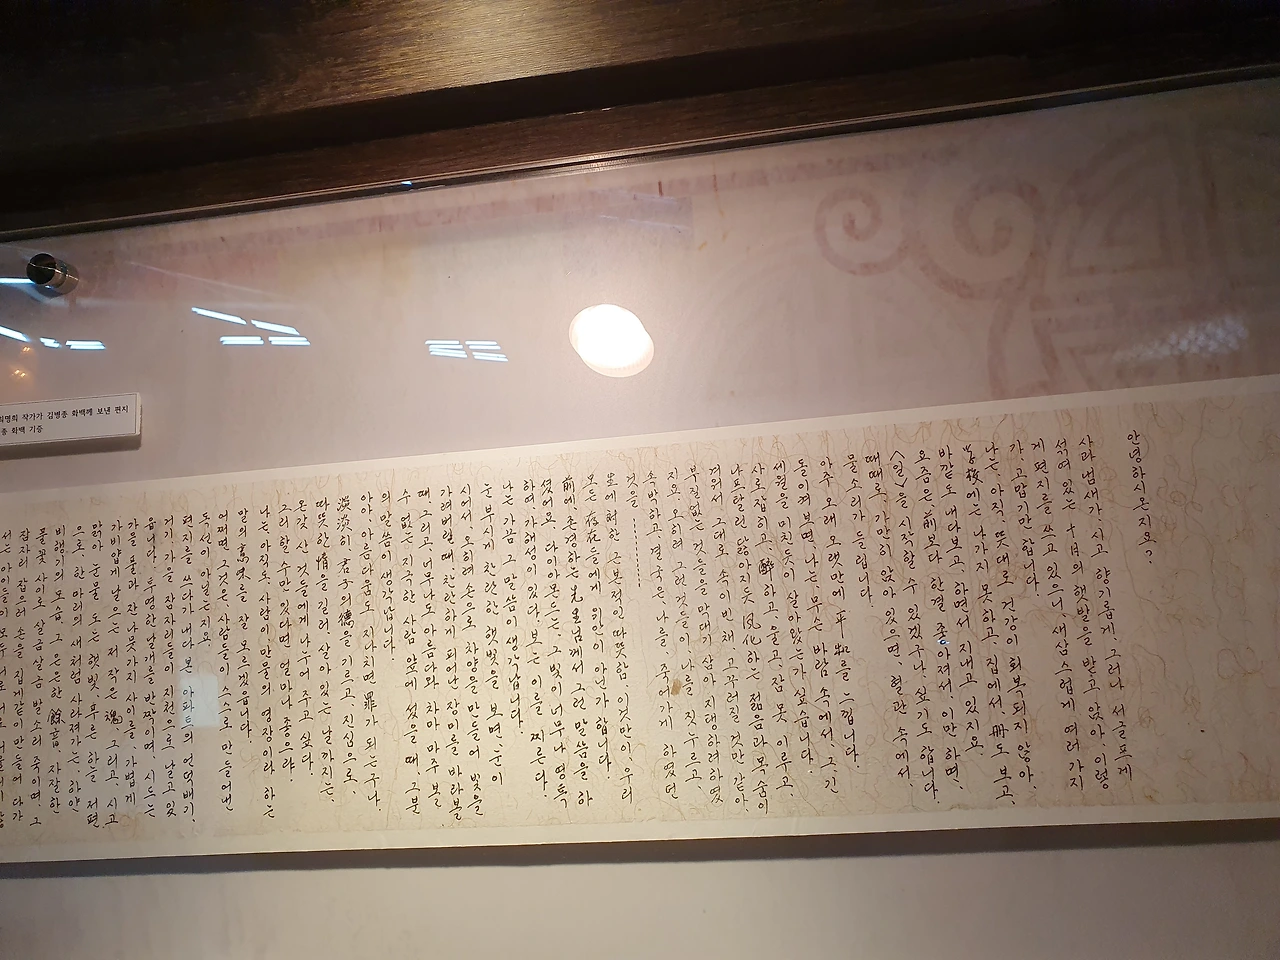 최명희 작가가 김병종 화백께 보낸 편지
종 화백 기증
안녕하시온지요?
사과 냄새가, 시고 향기롭게, 그러나 서글프게
섞여 있는 十月의 햇발을 받고 앉아, 이렇
게 편지를 쓰고 있으니, 새삼스럽게 여러 가지
가 고맙기만 합니다.
나는, 아직, 뜻대로 건강이 회복되지 않아,
學校에는 나가지 못하고, 집에서, 冊도 보고,
바깥도 내다보고 하면서 지내고 있지요.
요즘은 前보다 한결 좋아져서, 이만하면,
〈일〉을 시작할 수 있겠구나, 싶기도 합니다.
때때로, 가만히 앉아 있으면, 혈관 속에서,
물소리가 들립니다.
아주 오래 오랫만에 平和를 느낍니다.
돌이켜 보면, 나는, 무슨 바람 속에서, 그 긴
세월을 미친듯이 살아왔는가 싶습니다.
사로잡히고, 醉하고, 울고, 잠 못 이루고,
나부탈런 닳아지듯 風化하는 젊음과 목숨이
겨워서 그대로 속이 빈 채, 고꾸라질 것만 같아,
부질없는 것들을 막대기 삼아 지탱하려 하였
지요. 오히려 그런 것들이, 나를, 짓누르고,
속박하고, 결국은, 나를, 죽어가게 하였던
것을 ------
生에 對한 근본적인 따뜻함, 이것만이, 우리
모든 存在들에게 위안이 아닌가 합니다.
前에, 존경하는 先生님께서 그런 말씀을 하
셨어요. 다이아몬드는, 그 빛이 너무나 영특
하여, 가해성이 있다. 보는 이를, 찌른다.
나는 가끔 그 말씀이 생각납니다.
눈부시게 찬란한 햇빛을 보면, 눈이
시어서, 오히려 손으로 차양을 만들어 빛을
가려버릴 때, 찬란하게 피어난 장미를 바라볼
때, 그리고, 너무나도 아름다와 차마 마주 볼
수 없는 지극한 사람 앞에 섰을 때, 그분
의 말씀이 생각납니다.
아아, 아름다움도, 지나치면 罪가 되는구나.
淡淡히, 君子의 德을 기르고, 진심으로,
따뜻한 情을 길러, 살아 있는 날까지는,
온갖 산 것들에게 나누어 주고 싶다.
그리 할 수만 있다면 얼마나 좋을까.
나는, 아직도, 사람이 만물의 영장이라 하는
말의 意味를 잘 모르겠읍니다.
어쩌면 그것은, 사람들이 스스로 만들어낸
독선이 아닐는지요.
편지를 쓰다가 내다본 아파트의 언덕배기,
거기 가을 잠자리들이 지천으로 날고 있
읍니다. 투명한 날개를 반짝이며, 시드는
가을 풀과 잔 풀꽃 사이를, 가볍게,
가비얍게 날으는 저 작은 魂, 그리고, 시고
맑아 눈물 도는 햇빛, 푸른 하늘 저편
으로 한 마리의 새처럼 사라져가는, 하얀
비행기의 모습, 그 은은한 餘音, 자잘한
풀꽃 사이로 살금살금 발소리 죽이며, 그
잠자리 잡으려 손을 집게같이 만들어 다가
서는 아이들의